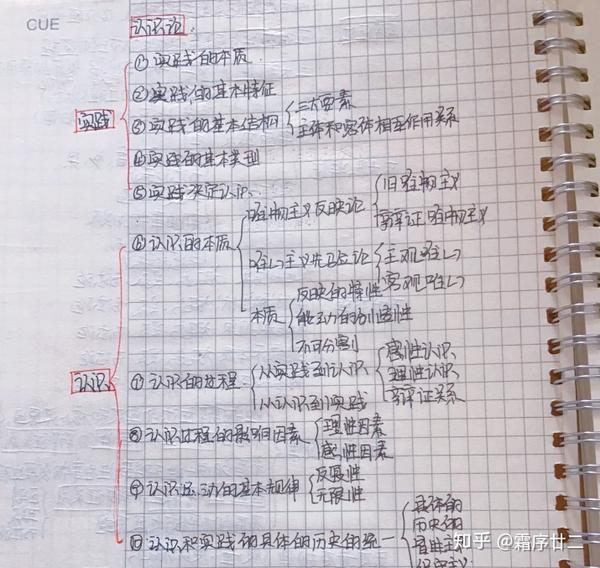 CUE
认识论
①实践的本质
②实践的基本特征
实践
③实践的基本结构
三大要素
主体和客体相互作用关系
④实践的基本类型
⑤实践决定认识
⑥认识的本质
唯物主义反映论
旧唯物主义
辩证唯物主义
唯心主义先验论
主观唯心
客观唯心
本质
反映的特性
能动的创造性
不可分割
认识
⑦认识的过程
从实践到认识
感性认识
理性认识
辩证关系
从认识到实践
⑧认识过程的影响因素
理性因素
感性因素
⑨认识运动的基本规律
反复性
无限性
⑩认识和实践的具体的历史的统一
具体的
历史的
冒险主
知乎 @霜序廿二